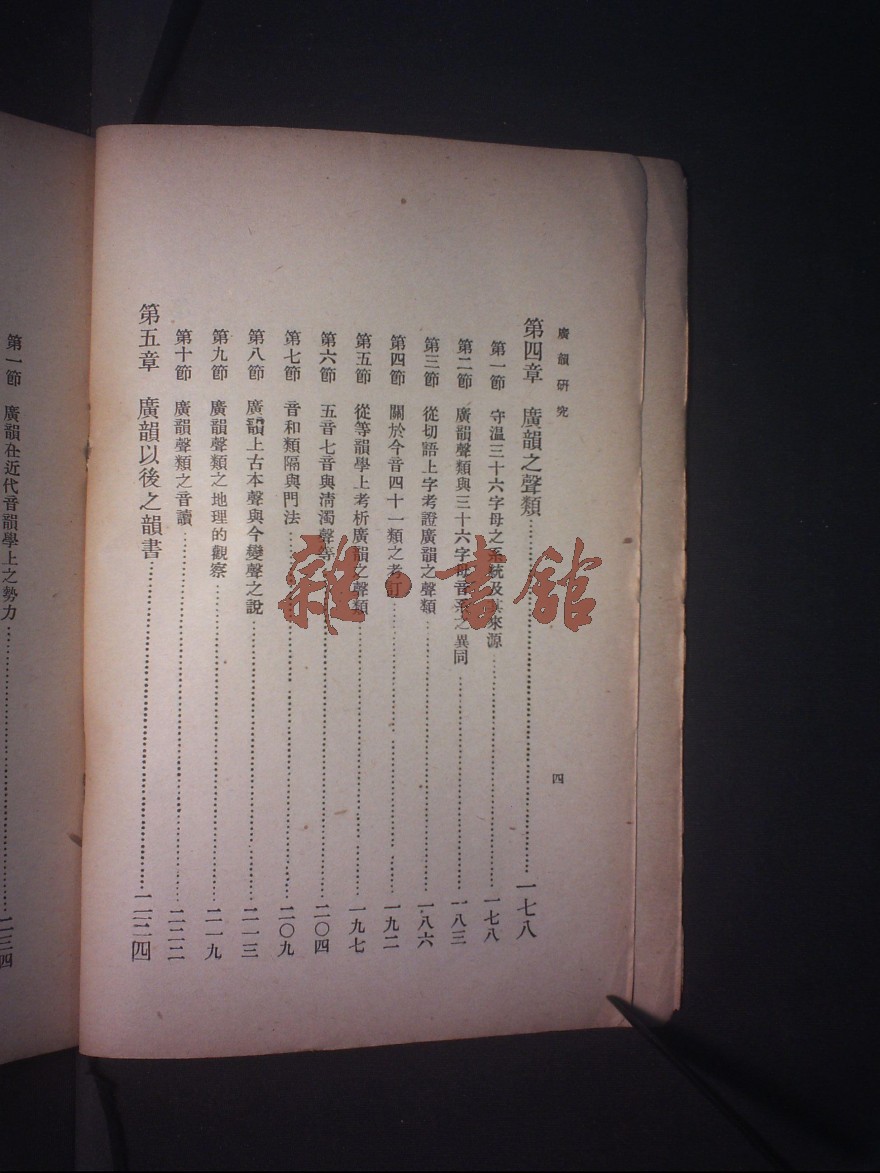 廣韻研究
四
第四章 廣韻之聲類……一七八
第一節 守溫三十六字母之系統及其來源……一七八
第二節 廣韻聲類與三十六字母音系之異同……一八三
第三節 從切語上字考證廣韻之聲類……一八六
第四節 關於今音四十一類之考訂……一九二
第五節 從等韻學上考析廣韻之聲類……一九七
第六節 五音七音與清濁聲等……二〇四
第七節 音和類隔與門法……二〇九
第八節 廣韻上古本聲與今變聲之說……二一三
第九節 廣韻聲類之地理的觀察……二一九
第十節 廣韻聲類之音讀……二二二
第五章 廣韻以後之韻書……二二四
第一節 廣韻在近代音韻學上之勢力……二三四
雜·書館